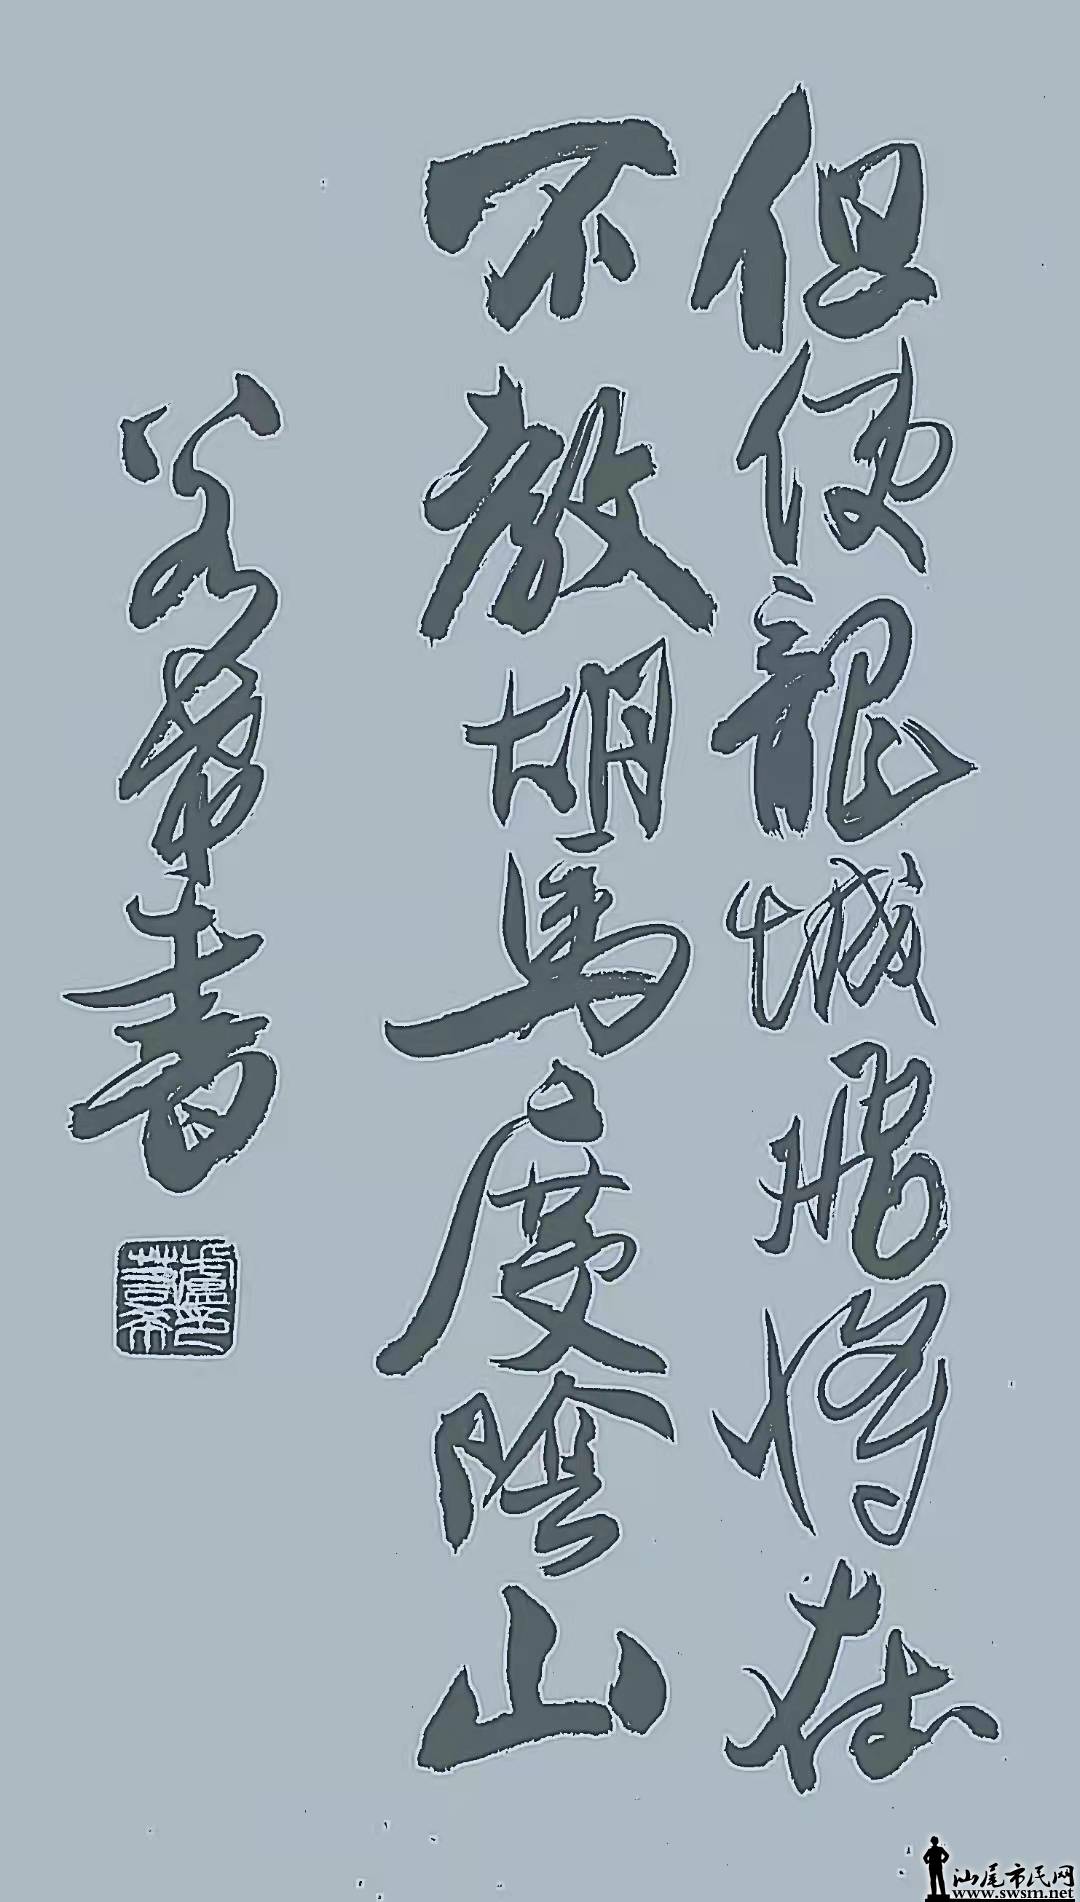 但使龍城飛將在
不教胡馬度陰山
書
汕尾市民网
www.swsm.net